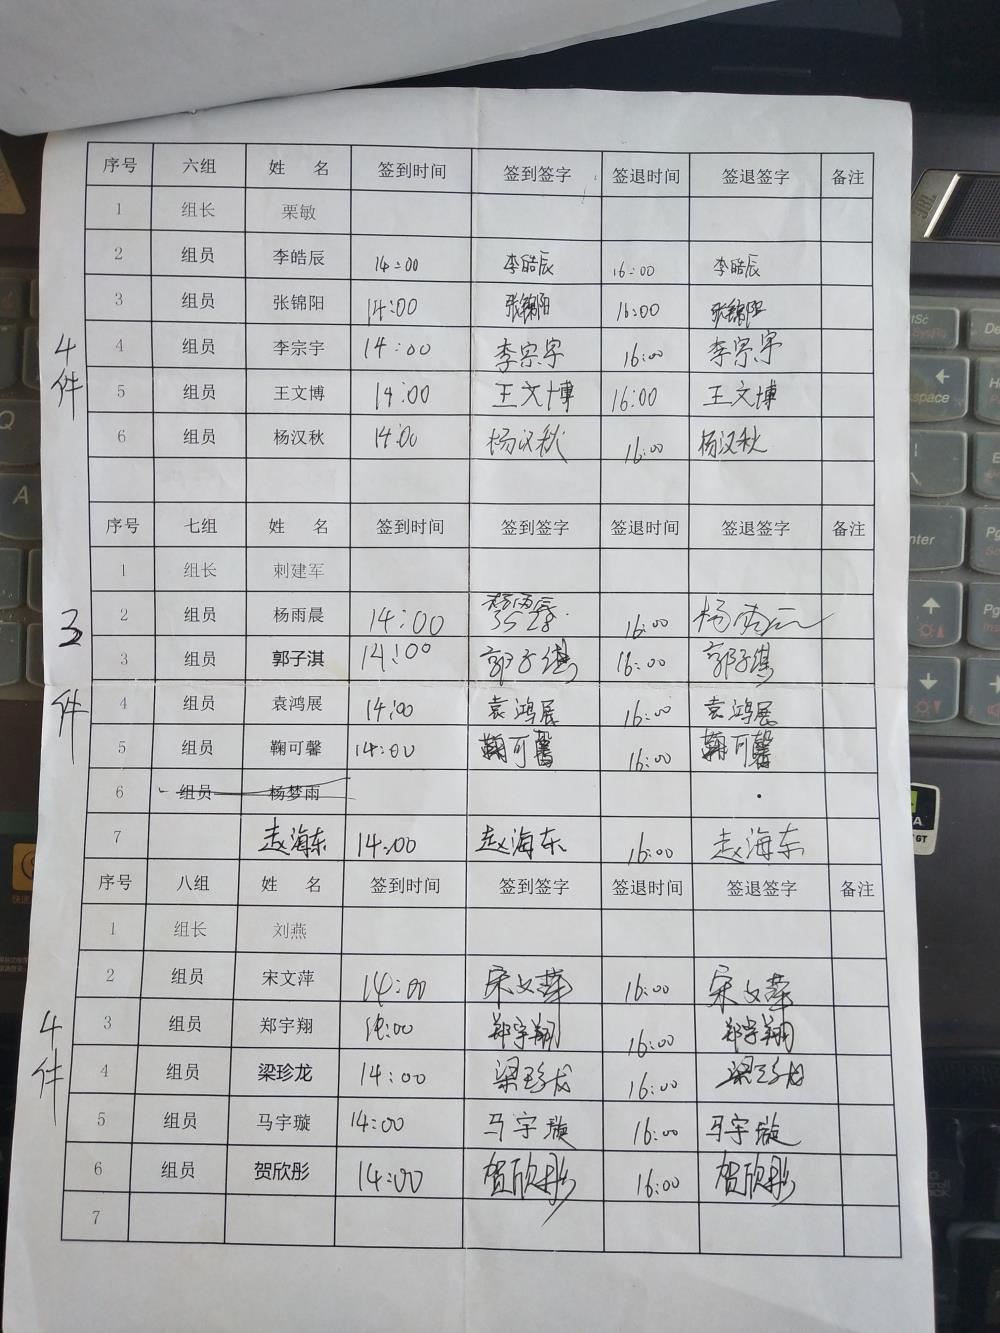 序号 六组 姓 名 签到时间 签到签字 签退时间 签退签字 备注
1 组长 栗敏
2 组员 李皓辰 14:00 李皓辰 16:00 李皓辰
3 组员 张锦阳 14:00 张锦阳 16:00 张锦阳
4 组员 李宗宇 14:00 李宗宇 16:00 李宗宇
4件
5 组员 王文博 14:00 王文博 16:00 王文博
6 组员 杨汉秋 14:00 杨汉秋 16:00 杨汉秋
序号 七组 姓 名 签到时间 签到签字 签退时间 签退签字 备注
1 组长 刺建军
2 组员 杨雨晨 14:00 16:00
3件
3 组员 郭子淇 14:00 郭子淇 16:00 郭子淇
4 组员 袁鸿展 14:00 袁鸿展 16:00 袁鸿展
5 组员 鞠可馨 14:00 鞠可馨 16:00 鞠可馨
6 组员 杨梦雨
7 赵海东 14:00 赵海东 16:00 赵海东
序号 八组 姓 名 签到时间 签到签字 签退时间 签退签字 备注
1 组长 刘燕
2 组员 宋文萍 14:00 宋文萍 16:00 宋文萍
3 组员 郑宇翔 14:00 郑宇翔 16:00 郑宇翔
4件
4 组员 梁珍龙 14:00 梁珍龙 16:00 梁珍龙
5 组员 马宇璇 14:00 马宇璇 16:00 马宇璇
6 组员 贺欣彤 14:00 贺欣彤 16:00 贺欣彤
7